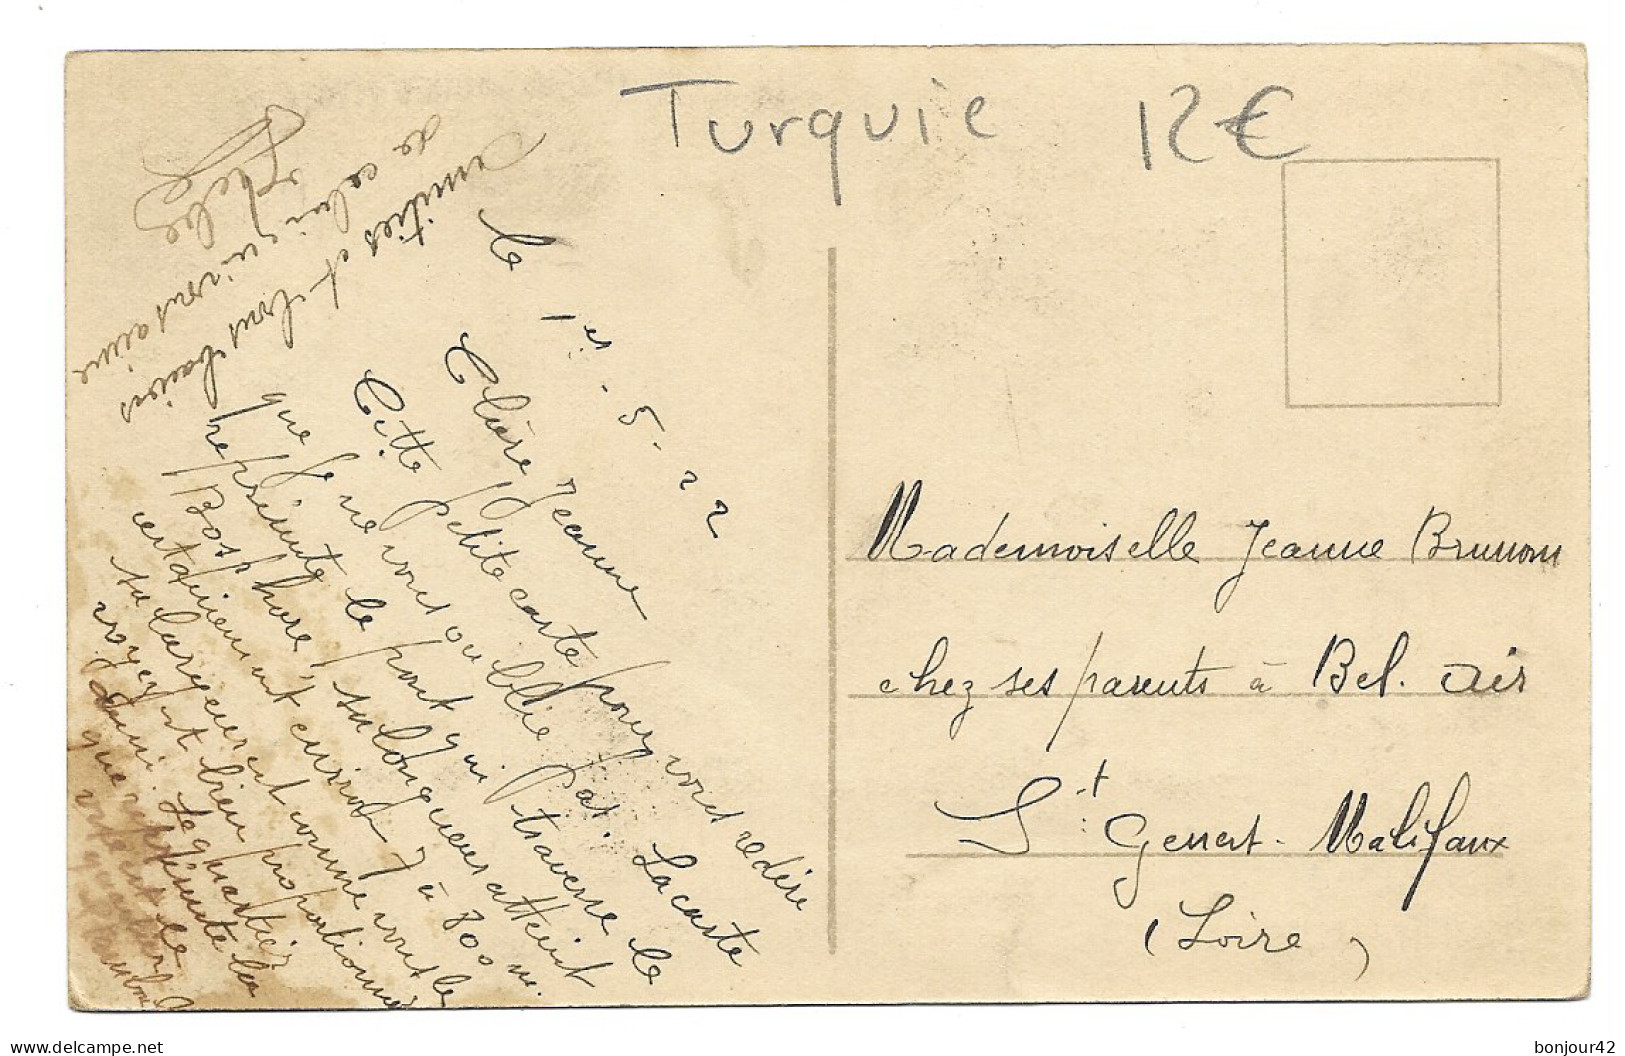 Turquie 12 €
le 1er - 5 - 22
Chère Jeanne
Cette petite carte pour vous redire
que je ne vous oublie pas. La carte
représente le pont qui traverse le
Bosphore, sa longueur atteint
certainement environ 7 à 800 m.
sa largeur est comme vous le
voyez est bien proportionnée
aussi. Le quartier
que représente la
carte est le
quartier
Amitiés et bons baisers
de celui qui vous aime
Mademoiselle Jeanne Brunon
chez ses parents à Bel. Air
St Genest-Malifaux
(Loire)
www.delcampe.net
bonjour42